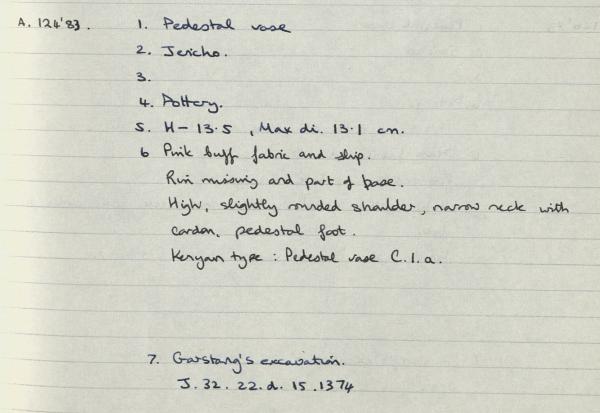 A. 124'83. 1. Pedestal vase
2. Jericho.
3.
4. Pottery.
5. H- 13.5 , Max di. 13.1 cm.
6 Pink buff fabric and slip.
Rim missing and part of base.
High, slightly rounded shoulder, narrow neck with
cordon, pedestal foot.
Kenyon type : Pedestal vase C.1.a.
7. Garstang's excavation.
J. 32. 22. d. 15. 1374